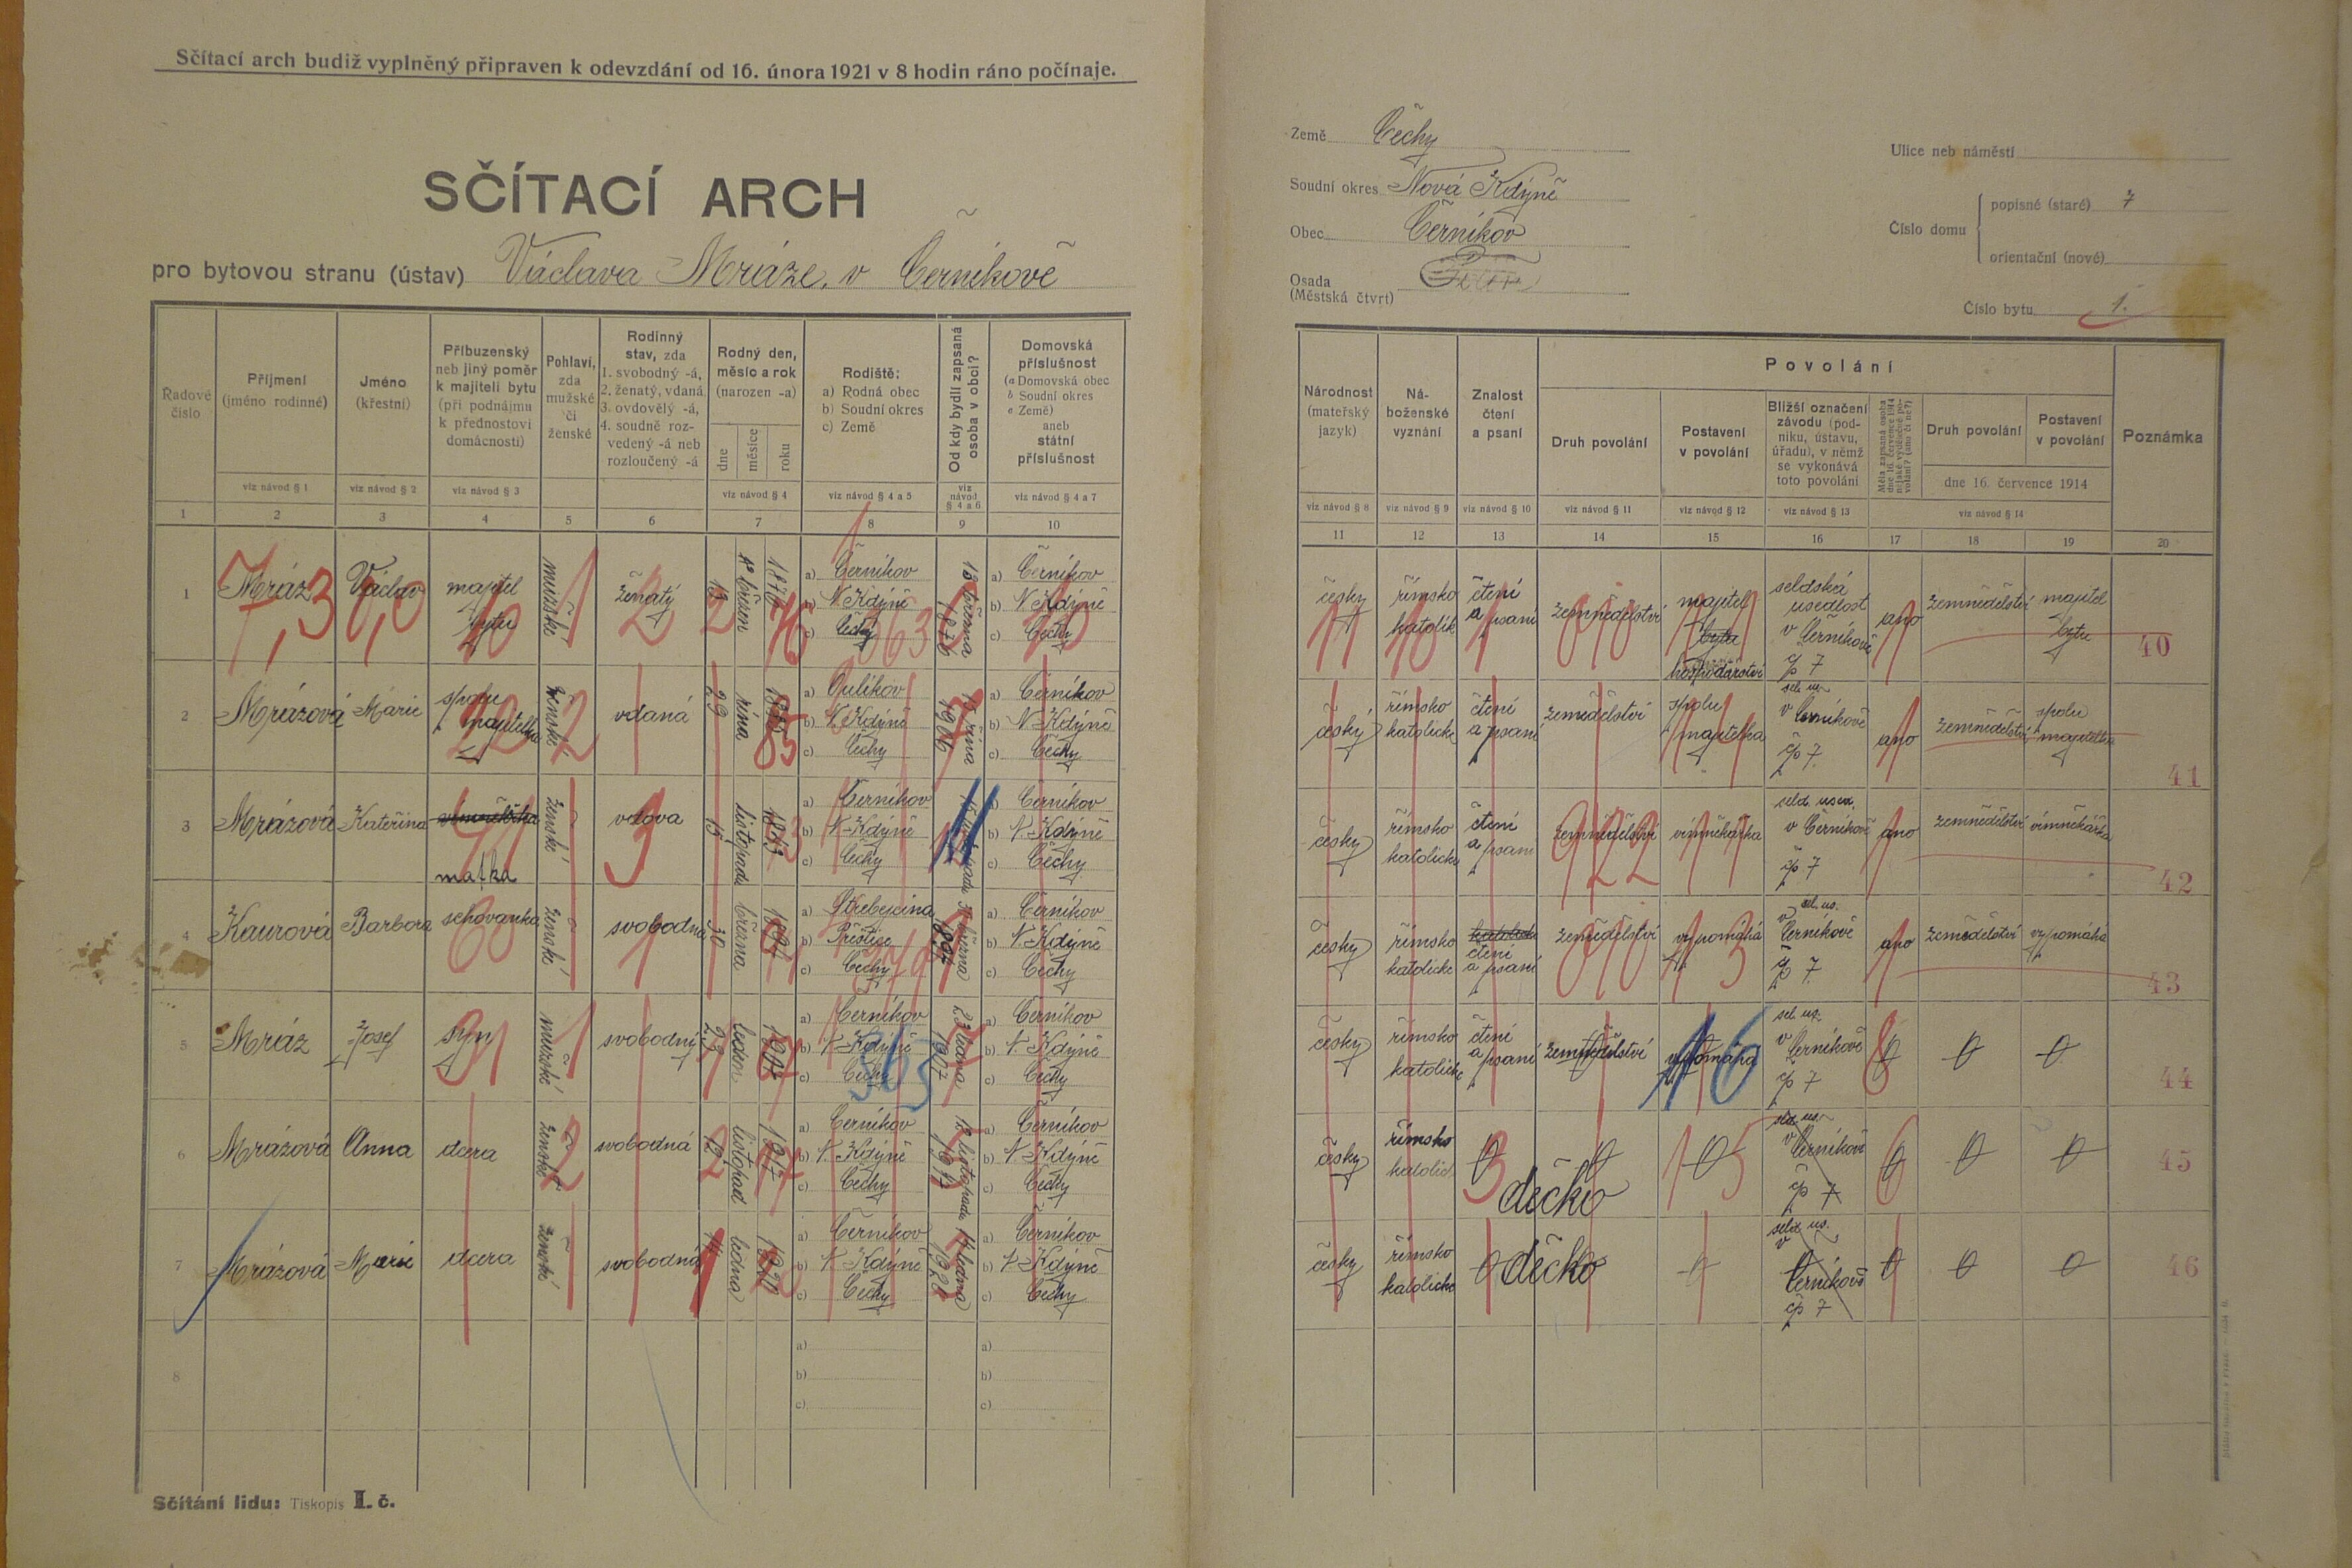 Sčítací arch budiž vyplněný připraven k odevzdání od 16. února 1921 v 8 hodin ráno počínaje.
SČÍTACÍ ARCH
pro bytovou stranu (ústav) Václava Mráze, v Černíkově
Řadové číslo
Příjmení (jméno rodinné)
Jméno (křestní)
Příbuzenský neb jiný poměr k majiteli bytu (při podnájmu k přednostovi domácnosti)
Pohlaví, zda mužské či ženské
Rodinný stav, zda 1. svobodný -á, 2. ženatý, vdaná 3. ovdovělý -á, 4. soudně rozvedený -á neb rozloučený -á
Rodný den, měsíc a rok (narozen -a)
dne měsíce roku
Rodiště: a) Rodná obec b) Soudní okres c) Země
Od kdy bydlí zapsaná osoba v obci?
Domovská příslušnost (a Domovská obec b Soudní okres c Země) aneb státní příslušnost
viz návod § 1 viz návod § 2 viz návod § 3 viz návod § 4 viz návod § 4 a 5 viz návod § 4 a 6 viz návod § 4 a 7
1 2 3 4 5 6 7 8 9 10
1 Mráz Václav majitel bytu mužské ženatý březen 1876 a) Černíkov b) N Kdýně c) Čechy března 1876 a) Černíkov b) N Kdýně c) Čechy
2 Mrázová Marie spolu majitelka ženské vdaná 29 října 1885 a) b) N Kdýně c) Čechy října 1906 a) Černíkov b) N Kdýně c) Čechy
3 Mrázová Kateřina matka ženské vdova 15 listopadu a) Černíkov b) N. Kdýně c) Čechy a) Černíkov b) N. Kdýně c) Čechy
4 Kaurová Barbora schovanka ženské svobodna 30 března a) b) Přeštice c) Čechy března a) Černíkov b) N. Kdýně c) Čechy
5 Mráz Josef syn mužské svobodný 23 leden 1907 a) Černíkov b) N. Kdýně c) Čechy 23 ledna 1907 a) Černíkov b) N. Kdýně c) Čechy
6 Mrázová Anna dcera ženské svobodná 12 listopad a) Černíkov b) N. Kdýně c) Čechy 12 listopadu a) Černíkov b) N. Kdýně c) Čechy
7 Mrázová Marie dcera ženské svobodná 14 ledna a) Černíkov b) N. Kdýně c) Čechy 14 ledna a) Černíkov b) N. Kdýně c) Čechy
8 a) b) c) a) b) c)
Sčítání lidu: Tiskopis I. č.
Země Čechy
Soudní okres Nová Kdýně
Obec Černíkov
Osada (Městská čtvrť)
Ulice neb náměstí
Číslo domu
popisné (staré) 7
orientační (nové)
Číslo bytu 1.
Národnost (mateřský jazyk)
Náboženské vyznání
Znalost čtení a psaní
Povolání
Druh povolání
Postavení v povolání
Bližší označení závodu (podniku, ústavu, úřadu), v němž se vykonává toto povolání
Měla zapsaná osoba dne 16. července 1914 nějaké výdělečné povolání? (ano či ne?)
Druh povolání
Postavení v povolání
dne 16. července 1914
Poznámka
viz návod § 8 viz návod § 9 viz návod § 10 viz návod § 11 viz návod § 12 viz návod § 13 viz návod § 14
11 12 13 14 15 16 17 18 19 20
česky římsko katolík čtení a psaní zemnědělství majitel bytu hospodářství seldská usedlost v Černíkově čp 7 ano zemnědělství majitel bytu 40
český římsko katolické čtení a psaní zemědělství spolu majitelka sel. us. v Černíkově čp 7. ano zemnědělství spolu majetelka 41
česky římsko katolické čtení a psaní zemnědělství vímněkářka seld. used. v Černíkově čp 7 ano zemnědělství vímněkářka 42
česky římsko katolické čtení a psaní zemědělství vypomáhá sel. us. v Černíkově čp 7. ano zemědělství vypomáhá 43
česky římsko katolické čtení a psaní zemnědělství vypomáhá sel. us. v Černíkově čp 7 0 0 0 44
česky římsko katolické 0 0 0 děcko seld. us. v Černíkově čp 7 0 0 0 45
česky římsko katolické 0 děcko 0 seld. us. v Černíkově čp 7 0 0 0 46